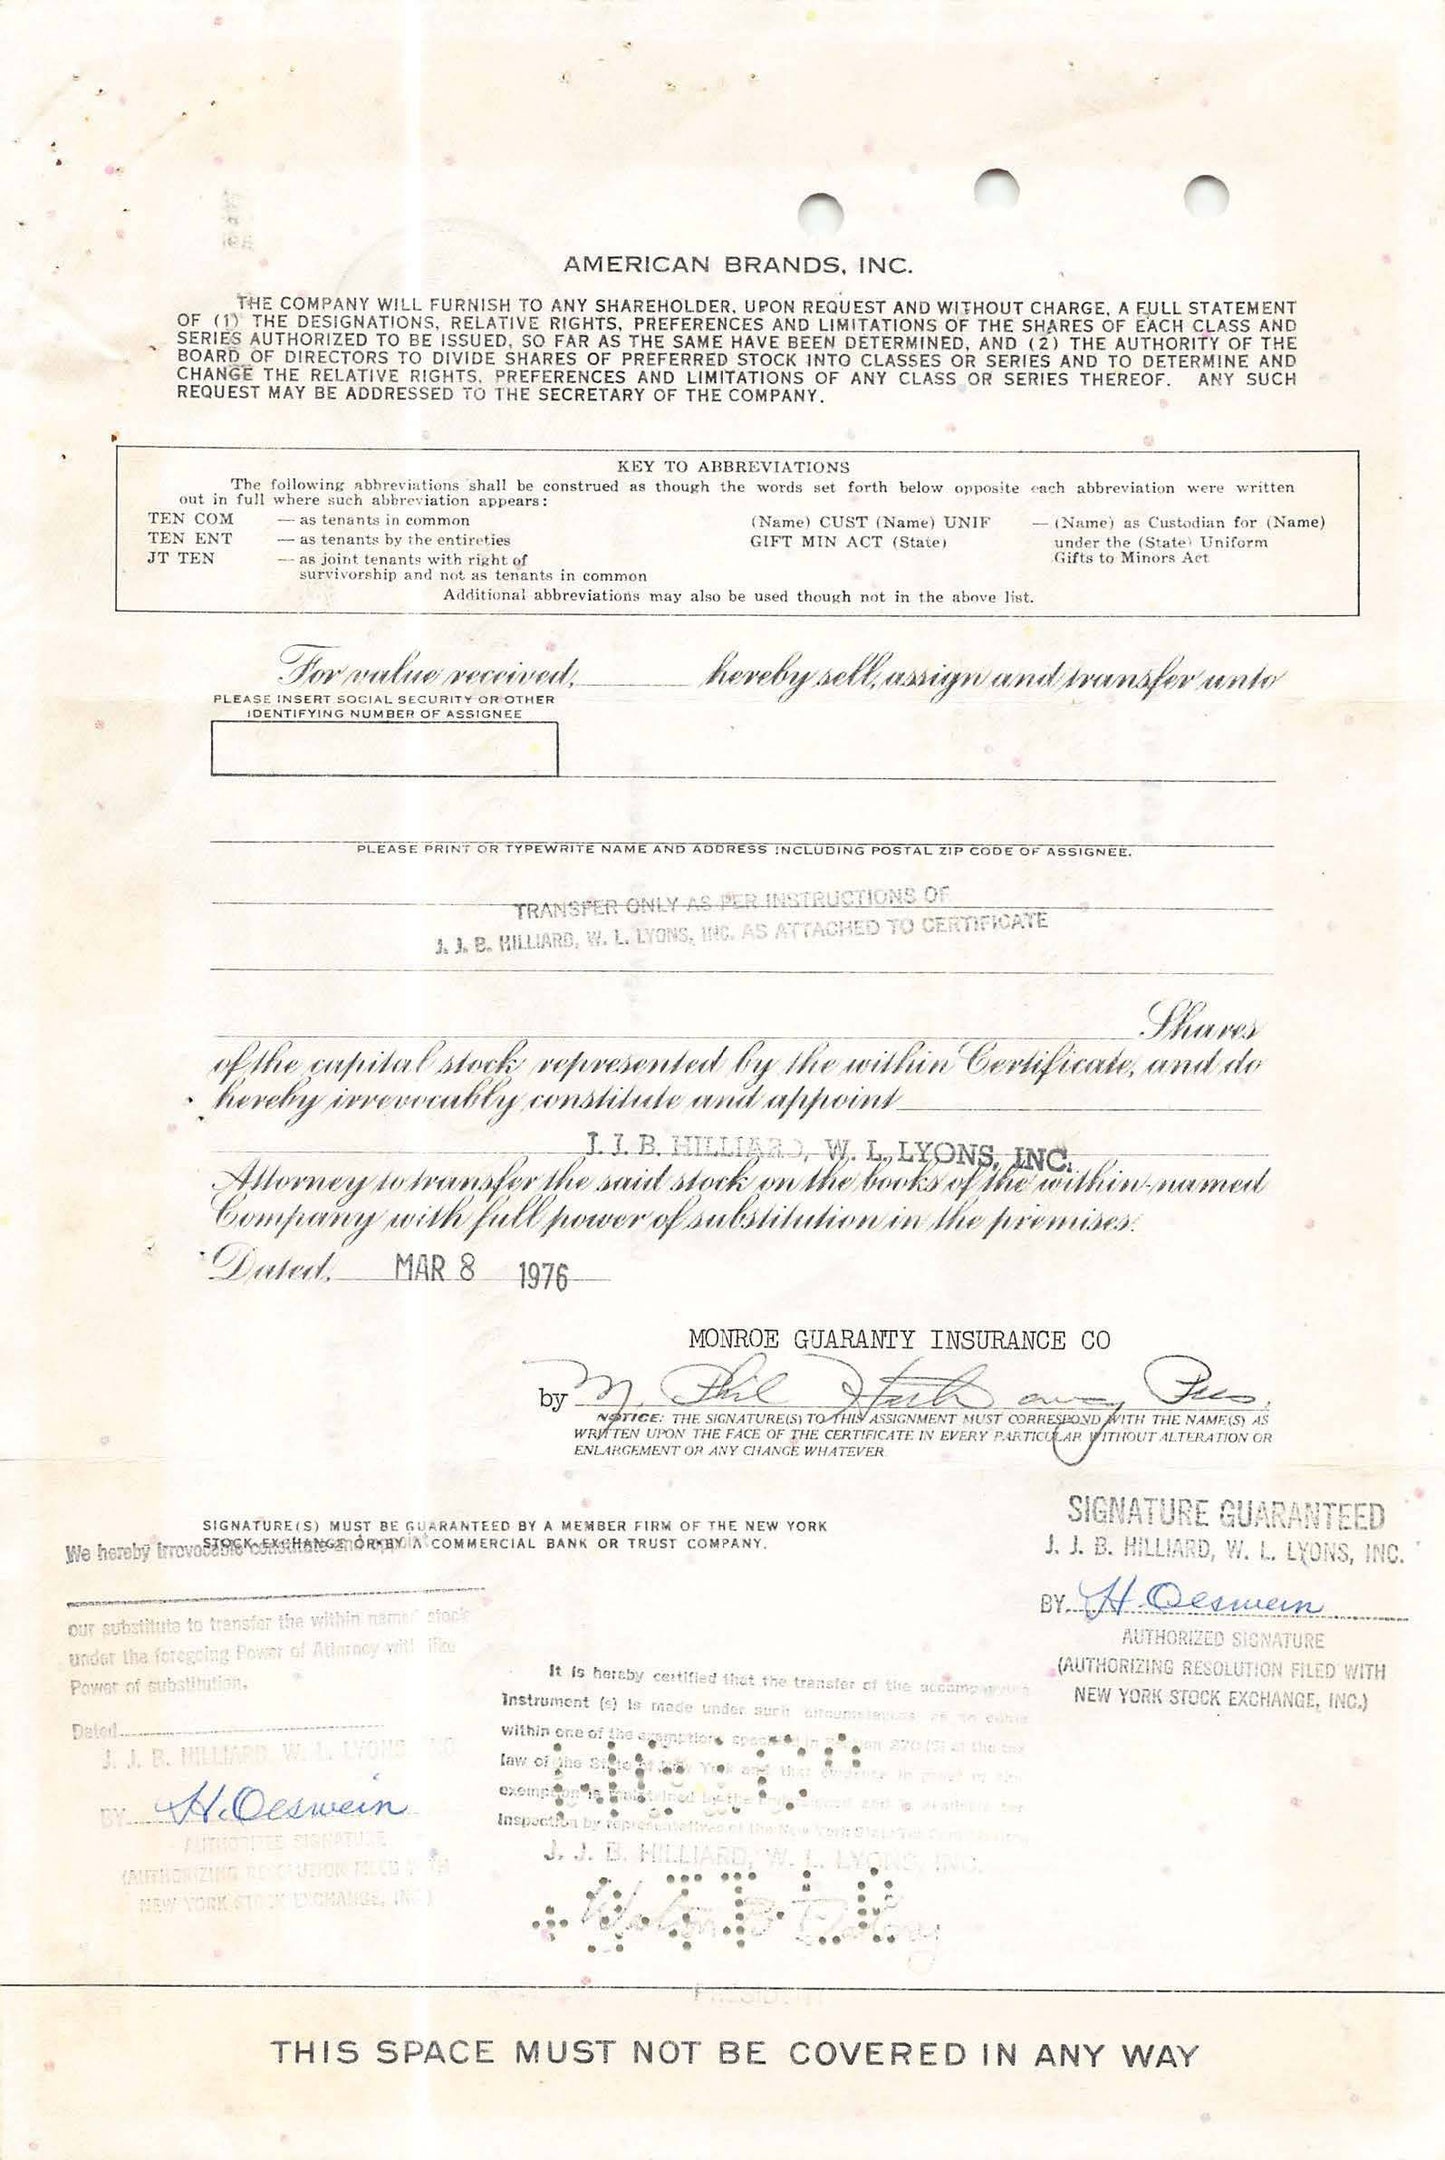 AMERICAN BRANDS, INC.
THE COMPANY WILL FURNISH TO ANY SHAREHOLDER, UPON REQUEST AND WITHOUT CHARGE, A FULL STATEMENT
OF (1) THE DESIGNATIONS, RELATIVE RIGHTS, PREFERENCES AND LIMITATIONS OF THE SHARES OF EACH CLASS AND
SERIES AUTHORIZED TO BE ISSUED, SO FAR AS THE SAME HAVE BEEN DETERMINED, AND (2) THE AUTHORITY OF THE
BOARD OF DIRECTORS TO DIVIDE SHARES OF PREFERRED STOCK INTO CLASSES OR SERIES AND TO DETERMINE AND
CHANGE THE RELATIVE RIGHTS, PREFERENCES AND LIMITATIONS OF ANY CLASS OR SERIES THEREOF. ANY SUCH
REQUEST MAY BE ADDRESSED TO THE SECRETARY OF THE COMPANY.
KEY TO ABBREVIATIONS
The following abbreviations shall be construed as though the words set forth below opposite each abbreviation were written
out in full where such abbreviation appears:
TEN COM — as tenants in common (Name) CUST (Name) UNIF — (Name) as Custodian for (Name)
TEN ENT — as tenants by the entireties GIFT MIN ACT (State) under the (State) Uniform
JT TEN — as joint tenants with right of Gifts to Minors Act
survivorship and not as tenants in common
Additional abbreviations may also be used though not in the above list.
For value received, hereby sell, assign and transfer unto
PLEASE INSERT SOCIAL SECURITY OR OTHER
IDENTIFYING NUMBER OF ASSIGNEE
PLEASE PRINT OR TYPEWRITE NAME AND ADDRESS INCLUDING POSTAL ZIP CODE OF ASSIGNEE.
TRANSFER ONLY AS PER INSTRUCTIONS OF
J. J. B. HILLIARD, W. L. LYONS, INC. AS ATTACHED TO CERTIFICATE
Shares
of the capital stock represented by the within Certificate, and do
hereby irrevocably constitute and appoint
J. J. B. HILLIARD, W. L. LYONS, INC.
Attorney to transfer the said stock on the books of the within-named
Company with full power of substitution in the premises.
Dated, MAR 8 1976
MONROE GUARANTY INSURANCE CO
by M. Phil Hathaway Pres.
NOTICE: THE SIGNATURE(S) TO THIS ASSIGNMENT MUST CORRESPOND WITH THE NAME(S) AS
WRITTEN UPON THE FACE OF THE CERTIFICATE IN EVERY PARTICULAR WITHOUT ALTERATION OR
ENLARGEMENT OR ANY CHANGE WHATEVER
SIGNATURE GUARANTEED
J. J. B. HILLIARD, W. L. LYONS, INC.
BY H. Oeswein
AUTHORIZED SIGNATURE
(AUTHORIZING RESOLUTION FILED WITH
NEW YORK STOCK EXCHANGE, INC.)
SIGNATURE(S) MUST BE GUARANTEED BY A MEMBER FIRM OF THE NEW YORK
STOCK EXCHANGE OR BY A COMMERCIAL BANK OR TRUST COMPANY.
We hereby irrevocable constitute and
our substitute to transfer the within name stock
under the foregoing Power of Attorney with like
Power of substitution.
Dated
J. J. B. HILLIARD, W. L. LYONS
BY H. Oeswein
AUTHORIZED SIGNATURE
(AUTHORIZING RESOLUTION FILED WITH
NEW YORK STOCK EXCHANGE, INC.)
It is hereby certified that the transfer of the
Instrument (s) is made under such circumstances
within one of the exemptions
law of the State of New York and that evidence
Inspection by representatives of the New York State
J. J. B. HILLIARD, W. L. LYONS, INC.
THIS SPACE MUST NOT BE COVERED IN ANY WAY